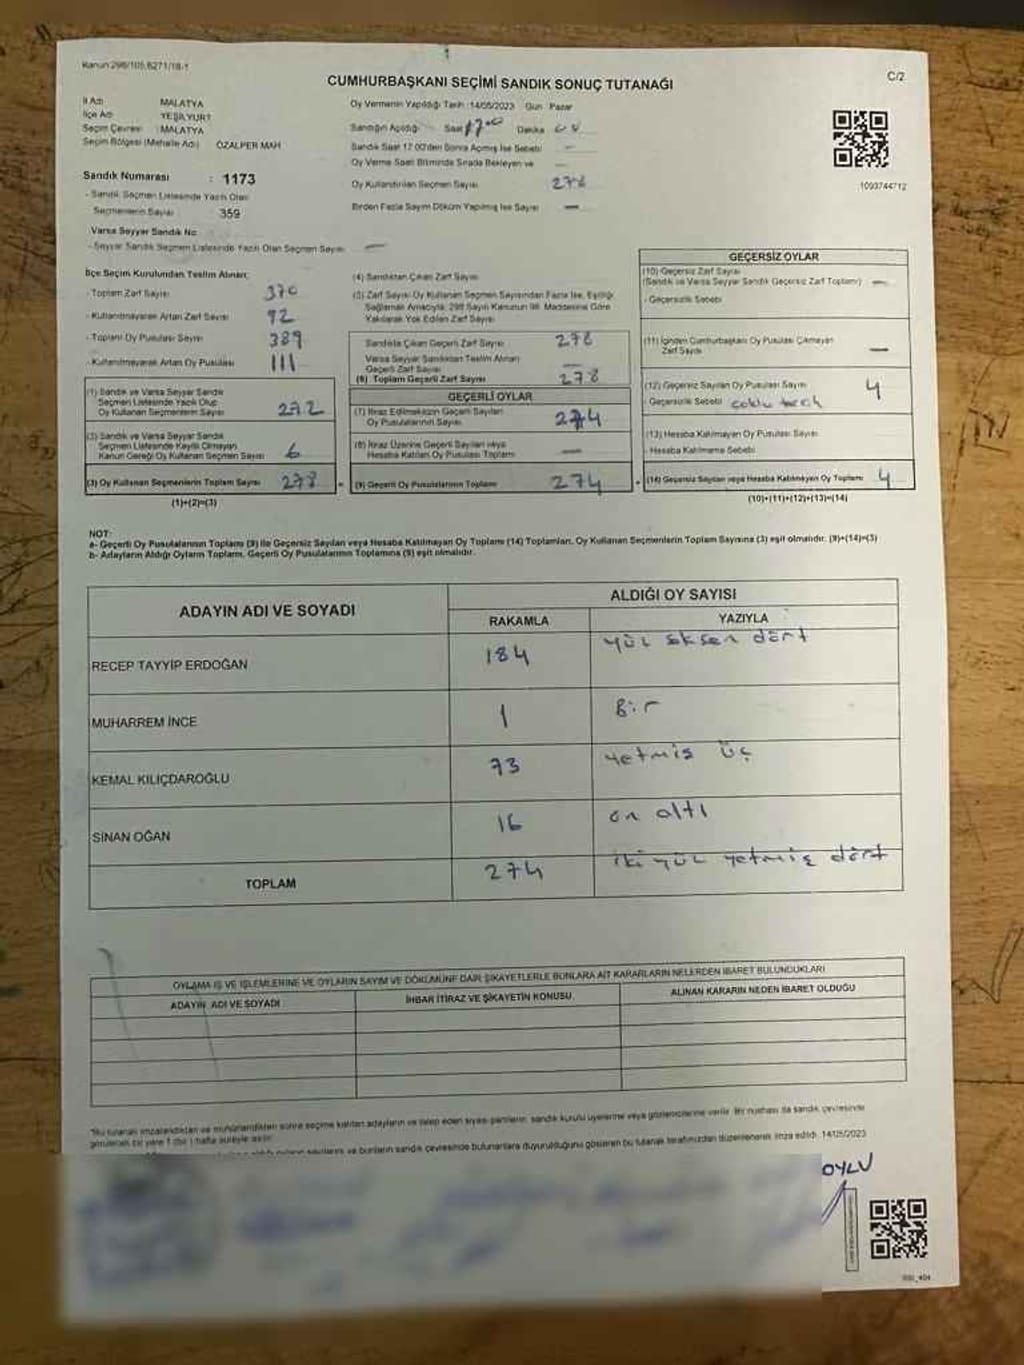 Kanun 298/105,6271/18-1
C/2
CUMHURBAŞKANI SEÇİMİ SANDIK SONUÇ TUTANAĞI
İl Adı MALATYA
İlçe Adı YEŞİLYURT
Seçim Çevresi MALATYA
Seçim Bölgesi (Mahalle Adı) ÖZALPER MAH
Sandık Numarası : 1173
- Sandık Seçmen Listesinde Yazılı Olan
Seçmenlerin Sayısı : 359
Varsa Seyyar Sandık No:
- Seyyar Sandık Seçmen Listesinde Yazılı Olan Seçmen Sayısı —
Oy Vermenin Yapıldığı Tarih :14/05/2023 Gün Pazar
Sandığın Açıldığı Saat 17:00 Dakika
Sandık Saat 17:00'den Sonra Açılmış İse Sebebi —
Oy Verme Saati Bitiminde Sırada Bekleyen ve —
Oy Kullandırılan Seçmen Sayısı 278
Birden Fazla Sayım Döküm Yapılmış İse Sayısı —
1093744712
İlçe Seçim Kurulundan Teslim Alınan:
- Toplam Zarf Sayısı 370
- Kullanılmayarak Artan Zarf Sayısı 92
- Toplam Oy Pusulası Sayısı 389
- Kullanılmayarak Artan Oy Pusulası 111
(1) Sandık ve Varsa Seyyar Sandık
Seçmen Listesinde Yazılı Olup
Oy Kullanan Seçmenlerin Sayısı 272
(2) Sandık ve Varsa Seyyar Sandık
Seçmen Listesinde Kayıtlı Olmayan
Kanun Gereği Oy Kullanan Seçmen Sayısı 6
(3) Oy Kullanan Seçmenlerin Toplam Sayısı 278
(1)+(2)=(3)
(4) Sandıktan Çıkan Zarf Sayısı
(5) Zarf Sayısı Oy Kullanan Seçmen Sayısından Fazla İse, Eşitliği
Sağlamak Amacıyla, 298 Sayılı Kanunun 98. Maddesine Göre
Yakılarak Yok Edilen Zarf Sayısı
Sandıkta Çıkan Geçerli Zarf Sayısı 278
Varsa Seyyar Sandıktan Teslim Alınan
Geçerli Zarf Sayısı —
(6) Toplam Geçerli Zarf Sayısı 278
GEÇERLİ OYLAR
(7) İtiraz Edilmeksizin Geçerli Sayılan
Oy Pusulalarının Sayısı 274
(8) İtiraz Üzerine Geçerli Sayılan veya
Hesaba Katılan Oy Pusulası Toplamı —
(9) Geçerli Oy Pusulalarının Toplamı 274
GEÇERSİZ OYLAR
(10) Geçersiz Zarf Sayısı
(Sandık ve Varsa Seyyar Sandık Geçersiz Zarf Toplamı) —
- Geçersizlik Sebebi
(11) İçinden Cumhurbaşkanı Oy Pusulası Çıkmayan
Zarf Sayısı —
(12) Geçersiz Sayılan Oy Pusulası Sayısı 4
- Geçersizlik Sebebi
(13) Hesaba Katılmayan Oy Pusulası Sayısı
- Hesaba Katılmama Sebebi
(14) Geçersiz Sayılan veya Hesaba Katılmayan Oy Toplamı 4
(10)+(11)+(12)+(13)=(14)
NOT:
a- Geçerli Oy Pusulalarının Toplamı (9) ile Geçersiz Sayılan veya Hesaba Katılmayan Oy Toplamı (14) Toplamları, Oy Kullanan Seçmenlerin Toplam Sayısına (3) eşit olmalıdır. (9)+(14)=(3)
b- Adayların Aldığı Oyların Toplamı, Geçerli Oy Pusulalarının Toplamına (9) eşit olmalıdır.
ADAYIN ADI VE SOYADI
ALDIĞI OY SAYISI
RAKAMLA YAZIYLA
RECEP TAYYİP ERDOĞAN 184 yüz seksen dört
MUHARREM İNCE 1 Bir
KEMAL KILIÇDAROĞLU 73 yetmiş üç
SİNAN OĞAN 16 on altı
TOPLAM 274 iki yüz yetmiş dört
OYLAMA İŞ VE İŞLEMLERİNE VE OYLARIN SAYIM VE DÖKÜMÜNE DAİR ŞİKAYETLERLE BUNLARA AİT KARARLARIN NELERDEN İBARET BULUNDUKLARI
ADAYIN ADI VE SOYADI İHBAR İTİRAZ VE ŞİKAYETİN KONUSU ALINAN KARARIN NEDEN İBARET OLDUĞU
*Bu tutanak imzalandıktan ve mühürlendikten sonra seçime katılan adayların ve talep eden siyasi partilerin, sandık kurulu üyelerine veya gözlemcilerine verilir. Bir nüshası da sandık çevresinde
görülecek bir yere 1 (bir) hafta süreyle asılır.
ve bunların sandık çevresinde bulunanlara duyurulduğunu gösteren bu tutanak tarafımızdan düzenlenerek imza edildi. 14/05/2023
OYLU